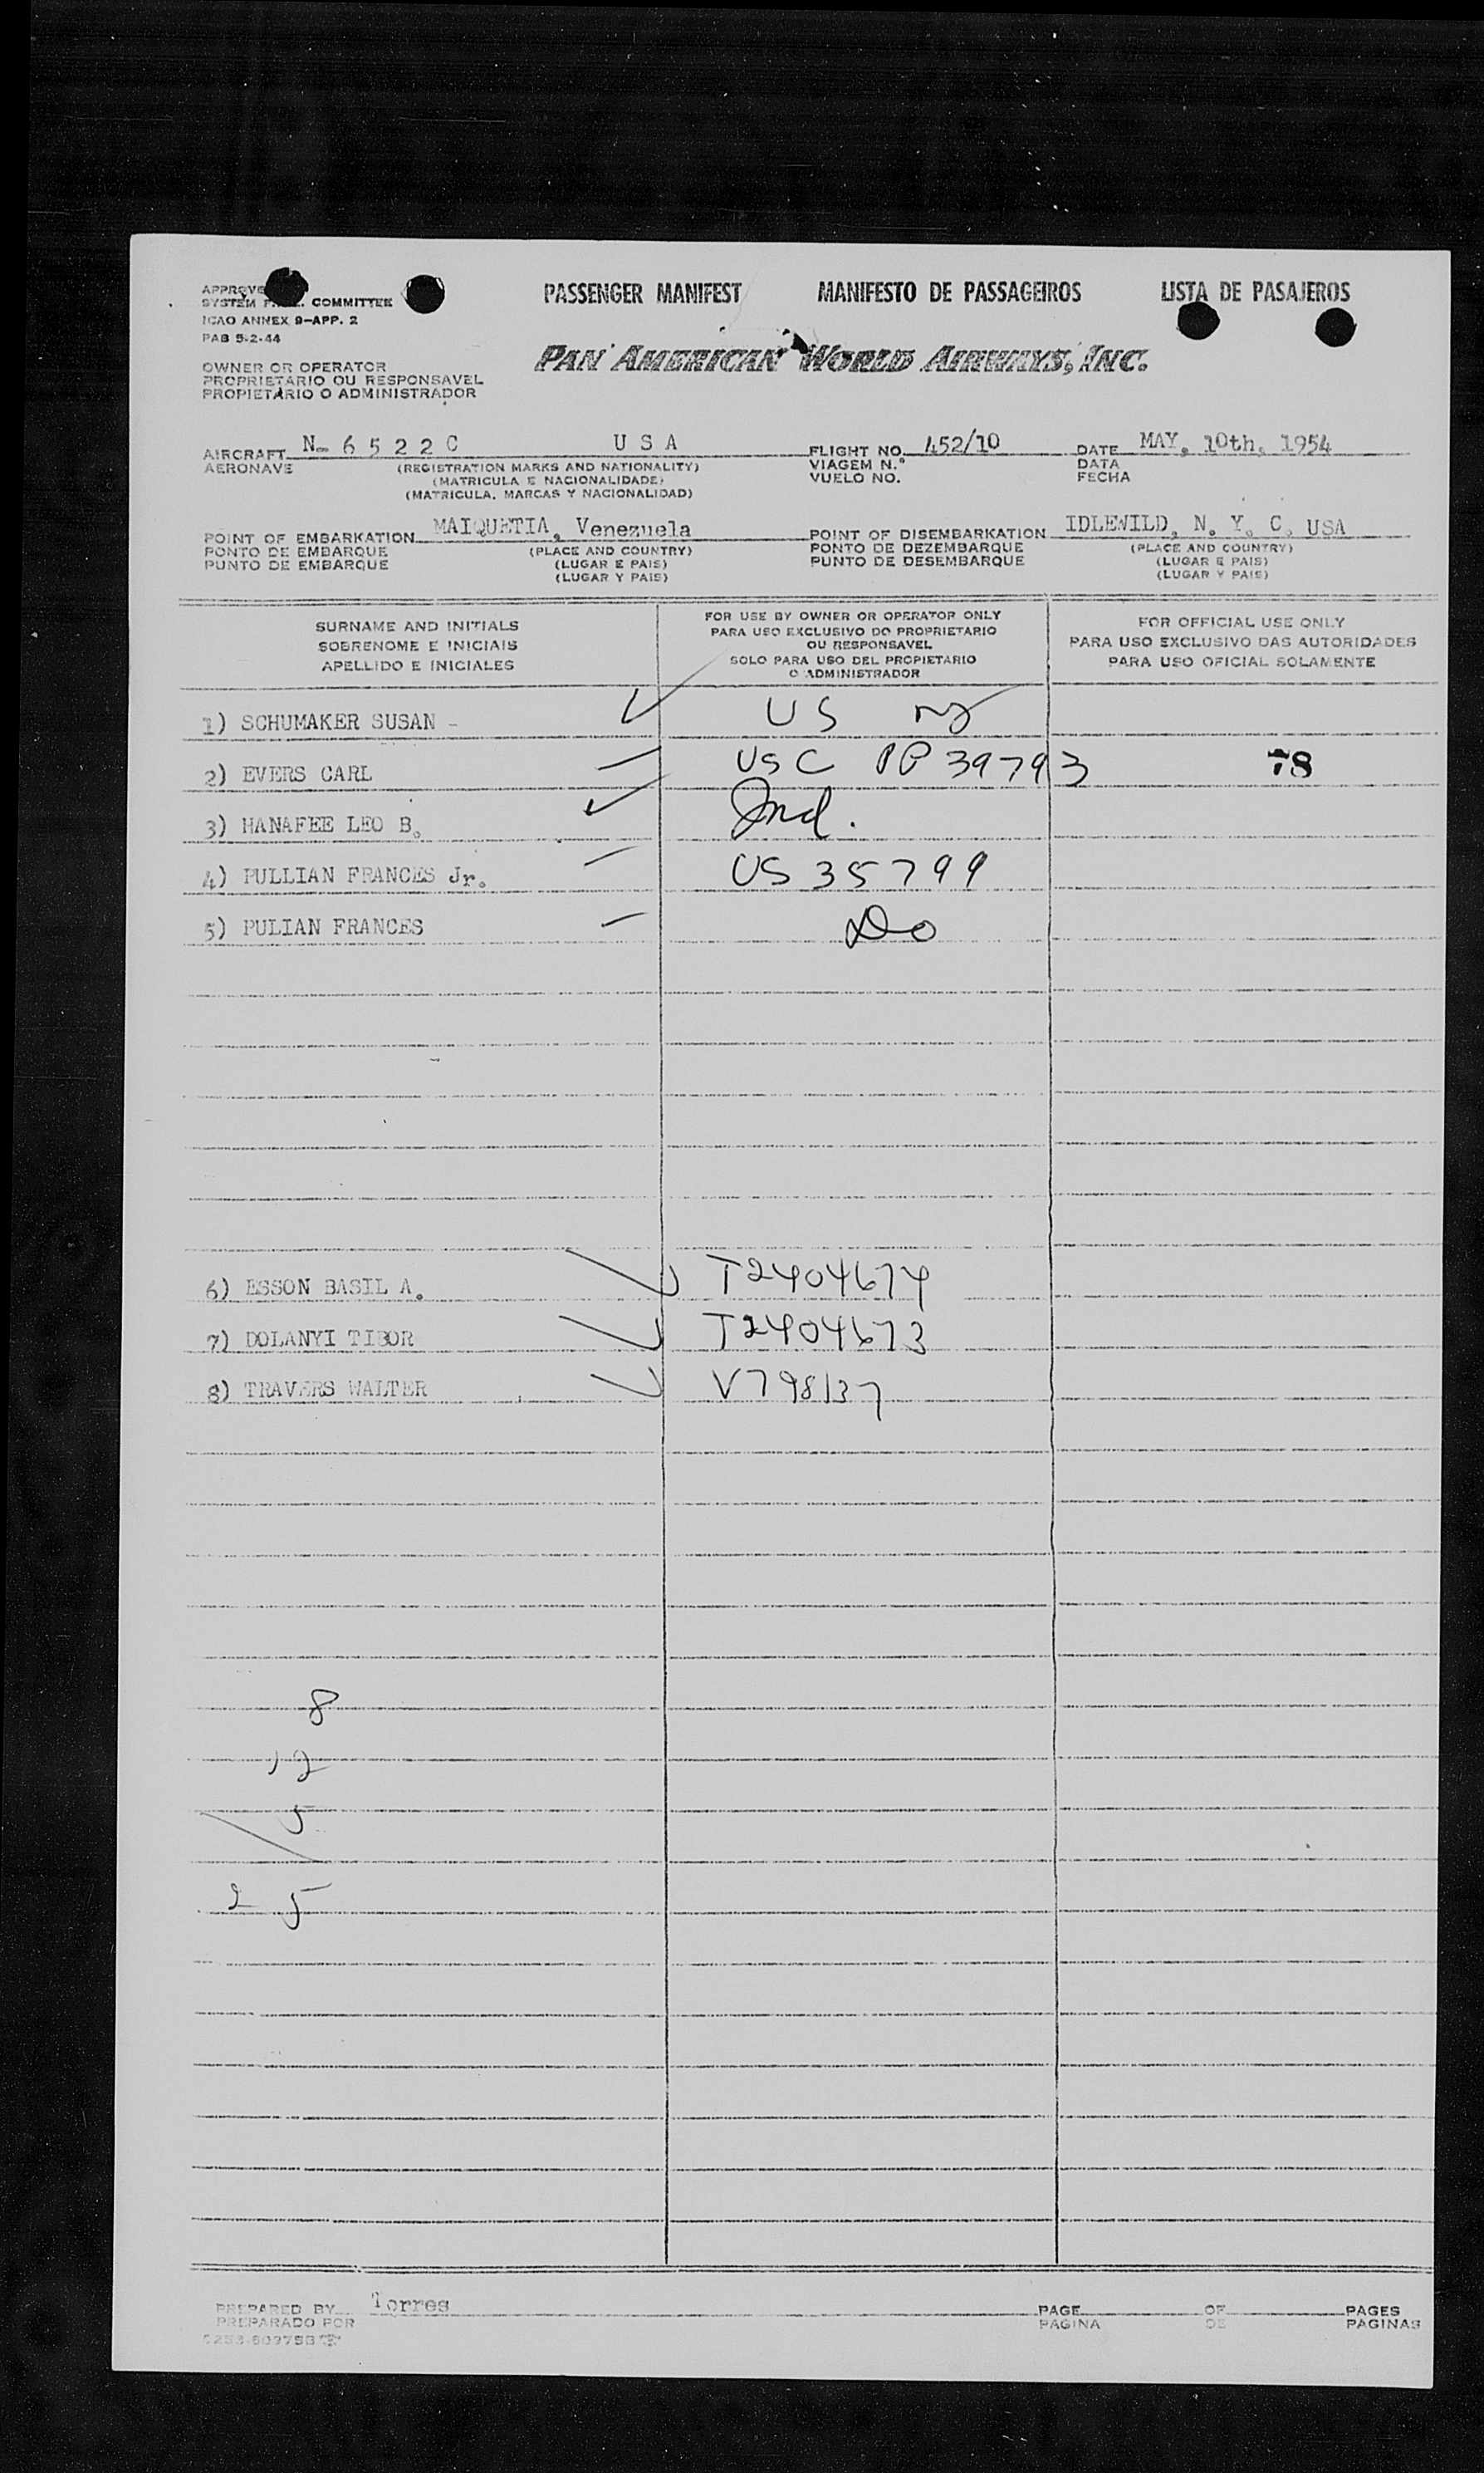 PASSENGER MANIFEST MANIFESTO DE PASSAGEIROS LISTA DE PASAJEROS
COMMITTEE
ICAO ANNEX 9-APP. 2
PAB 5-2-44
PAN AMERICAN WORLD AIRWAYS, INC.
OWNER OR OPERATOR
PROPRIETARIO OU RESPONSAVEL
PROPIETARIO O ADMINISTRADOR
AIRCRAFT N- 6 5 2 2 C U S A FLIGHT NO. 452/10 DATE MAY, 10th, 1954
AERONAVE (REGISTRATION MARKS AND NATIONALITY) VIAGEM N.° DATA
(MATRICULA E NACIONALIDADE) VUELO NO. FECHA
(MATRICULA, MARCAS Y NACIONALIDAD)
POINT OF EMBARKATION MAIQUETIA, Venezuela POINT OF DISEMBARKATION IDLEWILD, N. Y. C. USA
PONTO DE EMBARQUE (PLACE AND COUNTRY) PONTO DE DEZEMBARQUE (PLACE AND COUNTRY)
PUNTO DE EMBARQUE (LUGAR E PAIS) PUNTO DE DESEMBARQUE (LUGAR E PAIS)
(LUGAR Y PAIS) (LUGAR Y PAIS)
SURNAME AND INITIALS
SOBRENOME E INICIAIS
APELLIDO E INICIALES
FOR USE BY OWNER OR OPERATOR ONLY
PARA USO EXCLUSIVO DO PROPRIETARIO
OU RESPONSAVEL
SOLO PARA USO DEL PROPIETARIO
O ADMINISTRADOR
FOR OFFICIAL USE ONLY
PARA USO EXCLUSIVO DAS AUTORIDADES
PARA USO OFICIAL SOLAMENTE
1) SCHUMAKER SUSAN - US
2) EVERS CARL USC PP 39793 78
3) HANAFEE LEO B.
4) PULLIAN FRANCES Jr. US 35799
5) PULIAN FRANCES Do
6) ESSON BASIL A. T2404674
7) DOLANYI TIBOR T2404673
8) TRAVERS WALTER V798137
8
12
5
25
PREPARED BY Torres PAGE OF PAGES
PREPARADO POR PAGINA DE PAGINAS